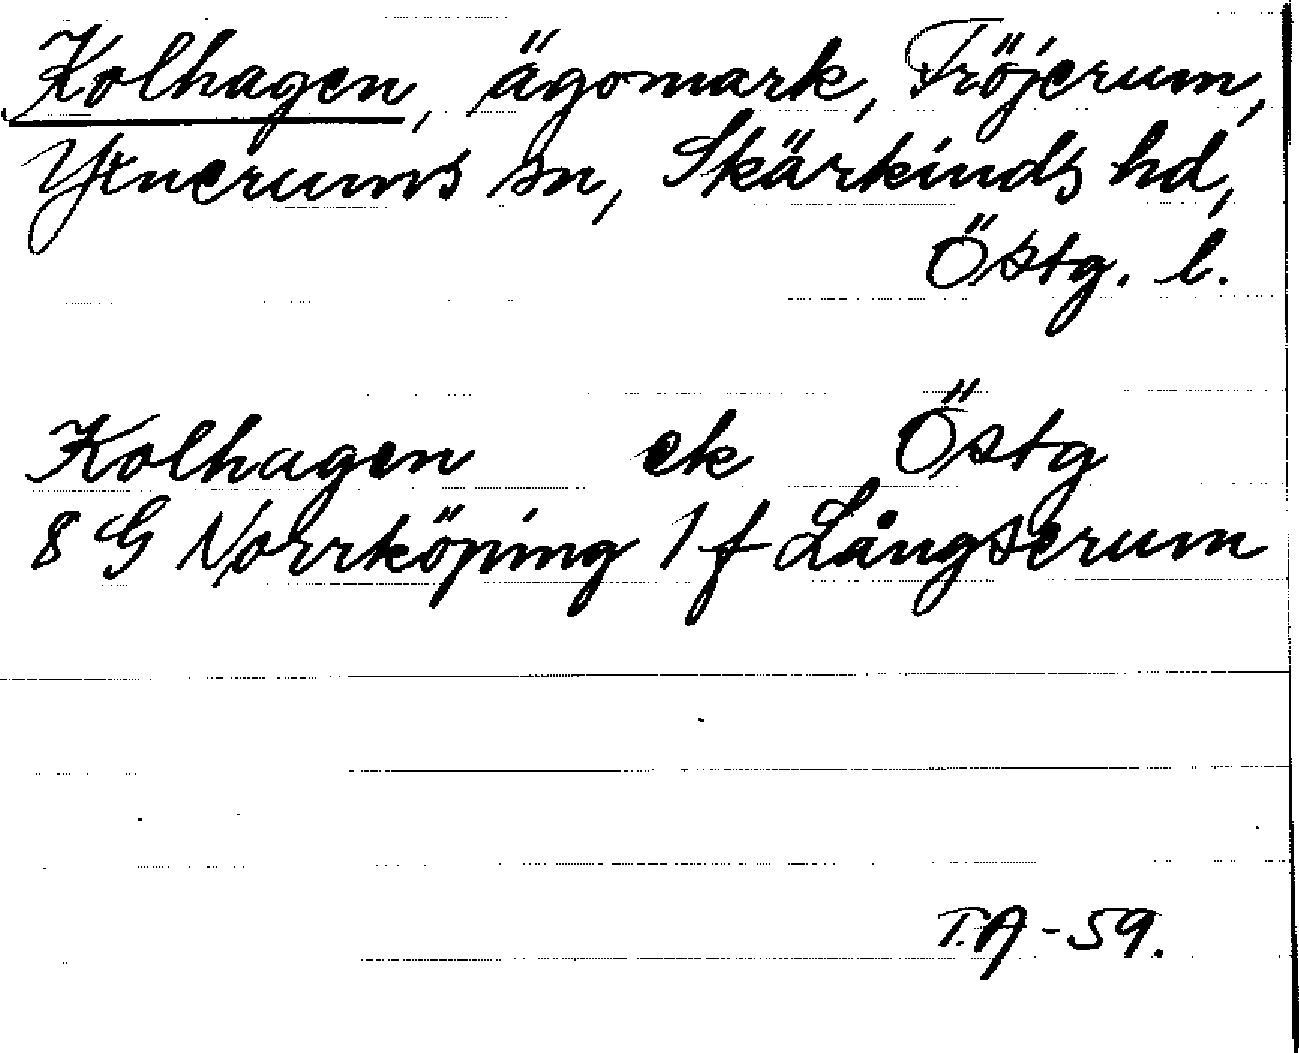 Kolhagen, ägomark, Fröjerum,
Ytnerums sn, Skärkinds hd,
Östg. l.
Kolhagen ek Östg
8 G Norrköping 1 f Långserum
T.A - 59.